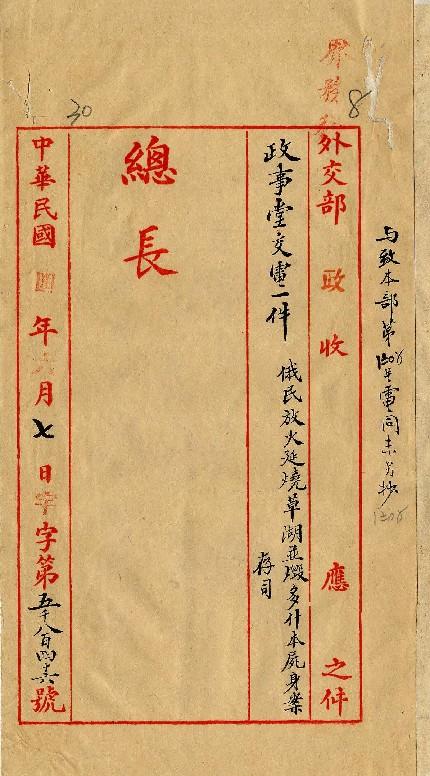 30
8
与致本部第1208号電同未另抄
1208
外交部 政 收 應 之件
政事堂交電一件 俄民放火延燒草湖並燬多什本屍身案
存司
總長
中華民國四年六月七日字第五千八百四十號